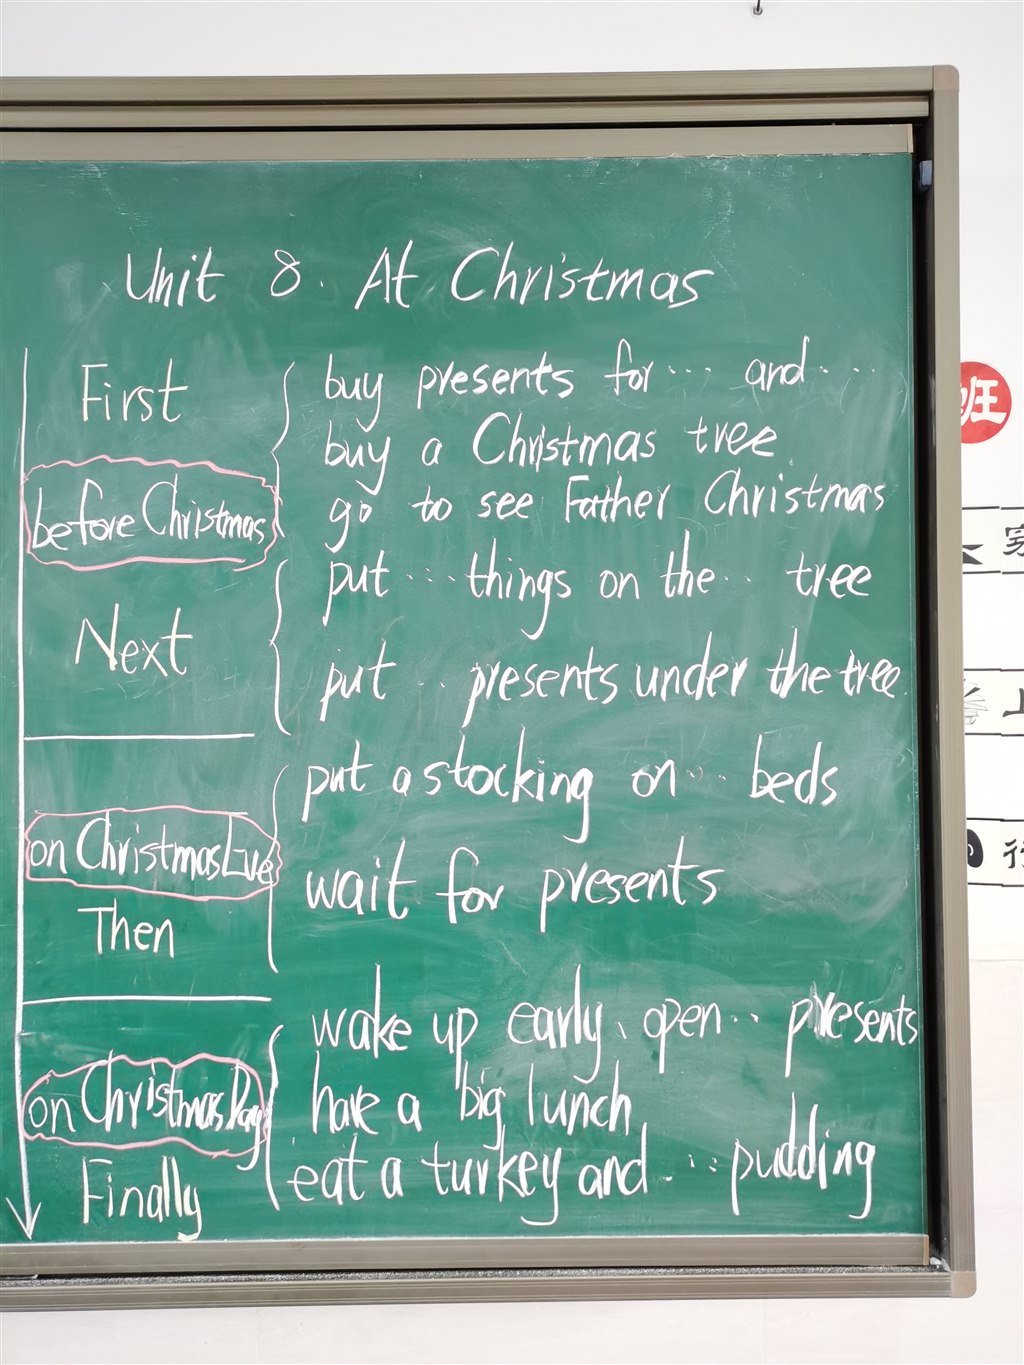 Unit 8. At Christmas
First
buy presents for ... and ...
buy a Christmas tree
before Christmas
go to see Father Christmas
put ... things on the ... tree
Next
put ... presents under the tree
put a stocking on ... beds
on Christmas Eve
wait for presents
Then
wake up early、open ... presents
on Christmas Day
have a big lunch
eat a turkey and ... pudding
Finally
班
上
行